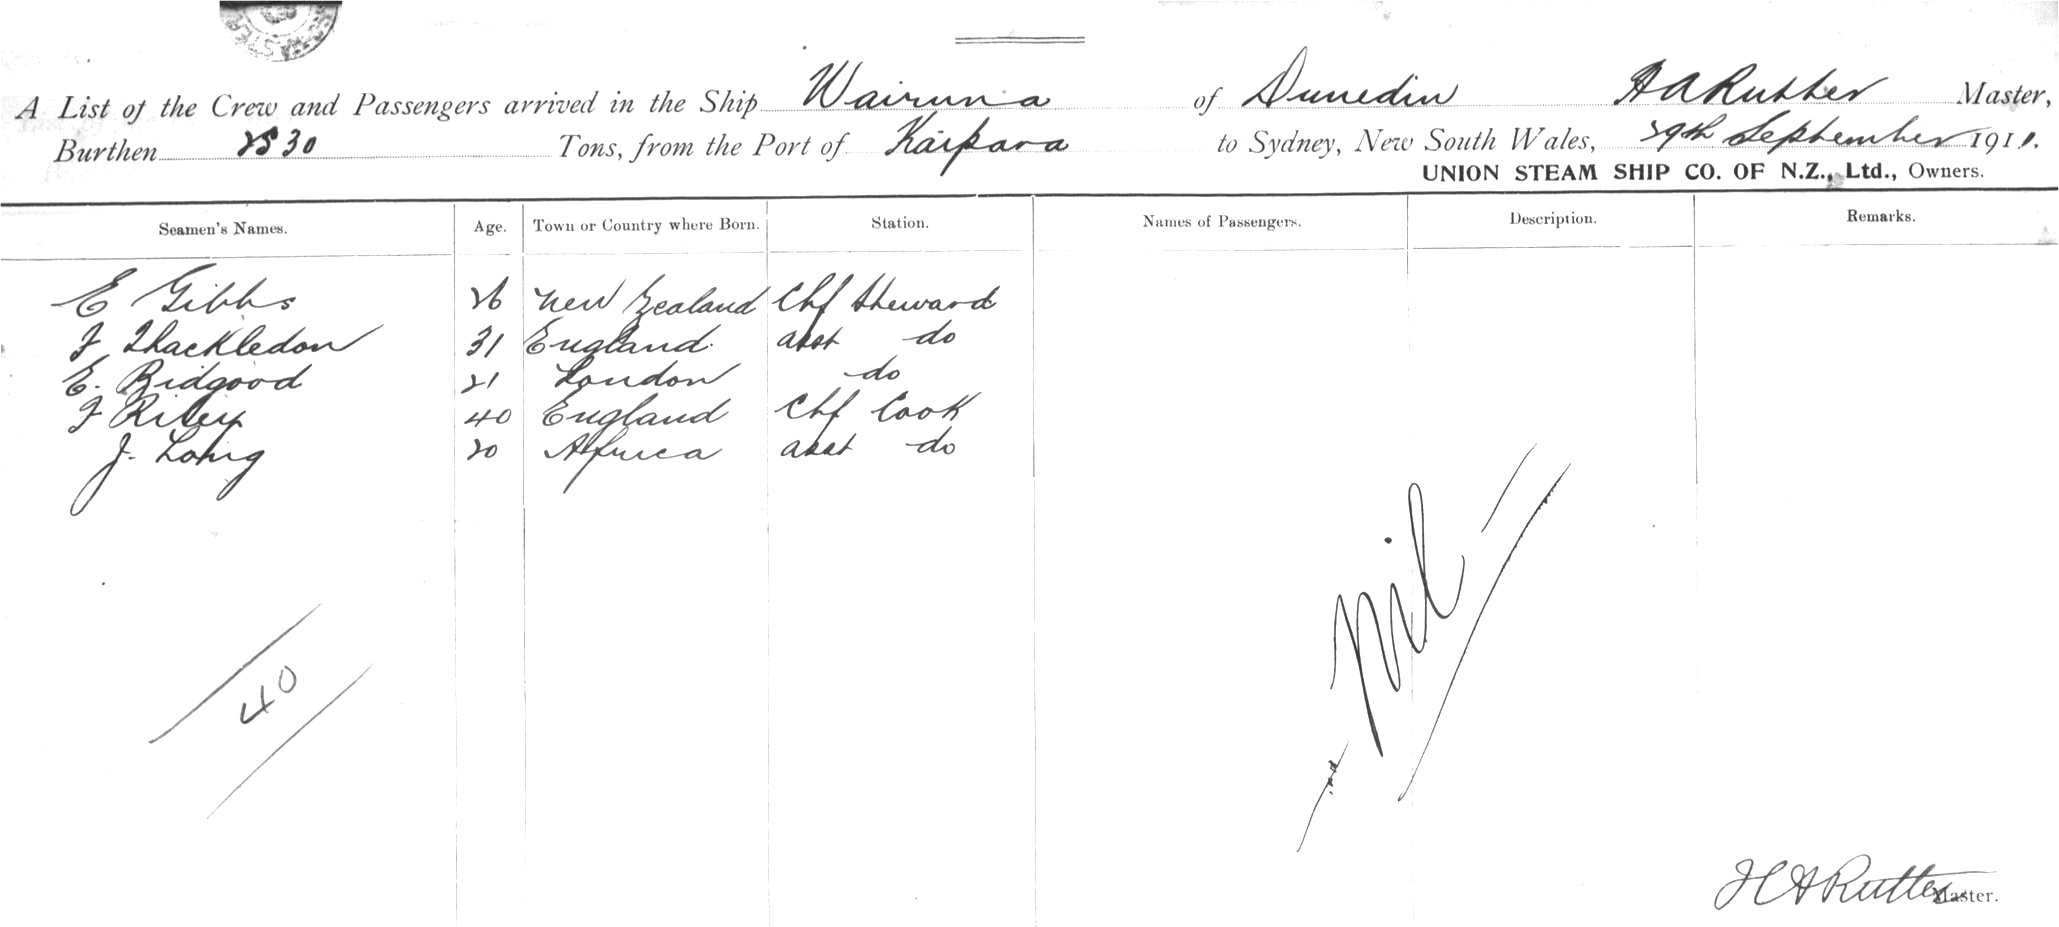 A List of the Crew and Passengers arrived in the Ship Wairuna of Dunedin H A Rutter Master,
Burthen 2530 Tons, from the Port of Kaipara to Sydney, New South Wales, 29th September 1911.
UNION STEAM SHIP CO. OF N.Z., Ltd., Owners.
Seamen's Names. Age. Town or Country where Born. Station. Names of Passengers. Description. Remarks.
E Gibbs 26 New Zealand Chf Steward
F Shackledon 31 England asst do
E. Bidgood 21 London do
F Riley 40 England Chf Cook
J. Long 20 Africa asst do
Nil
40
H A Rutter Master.